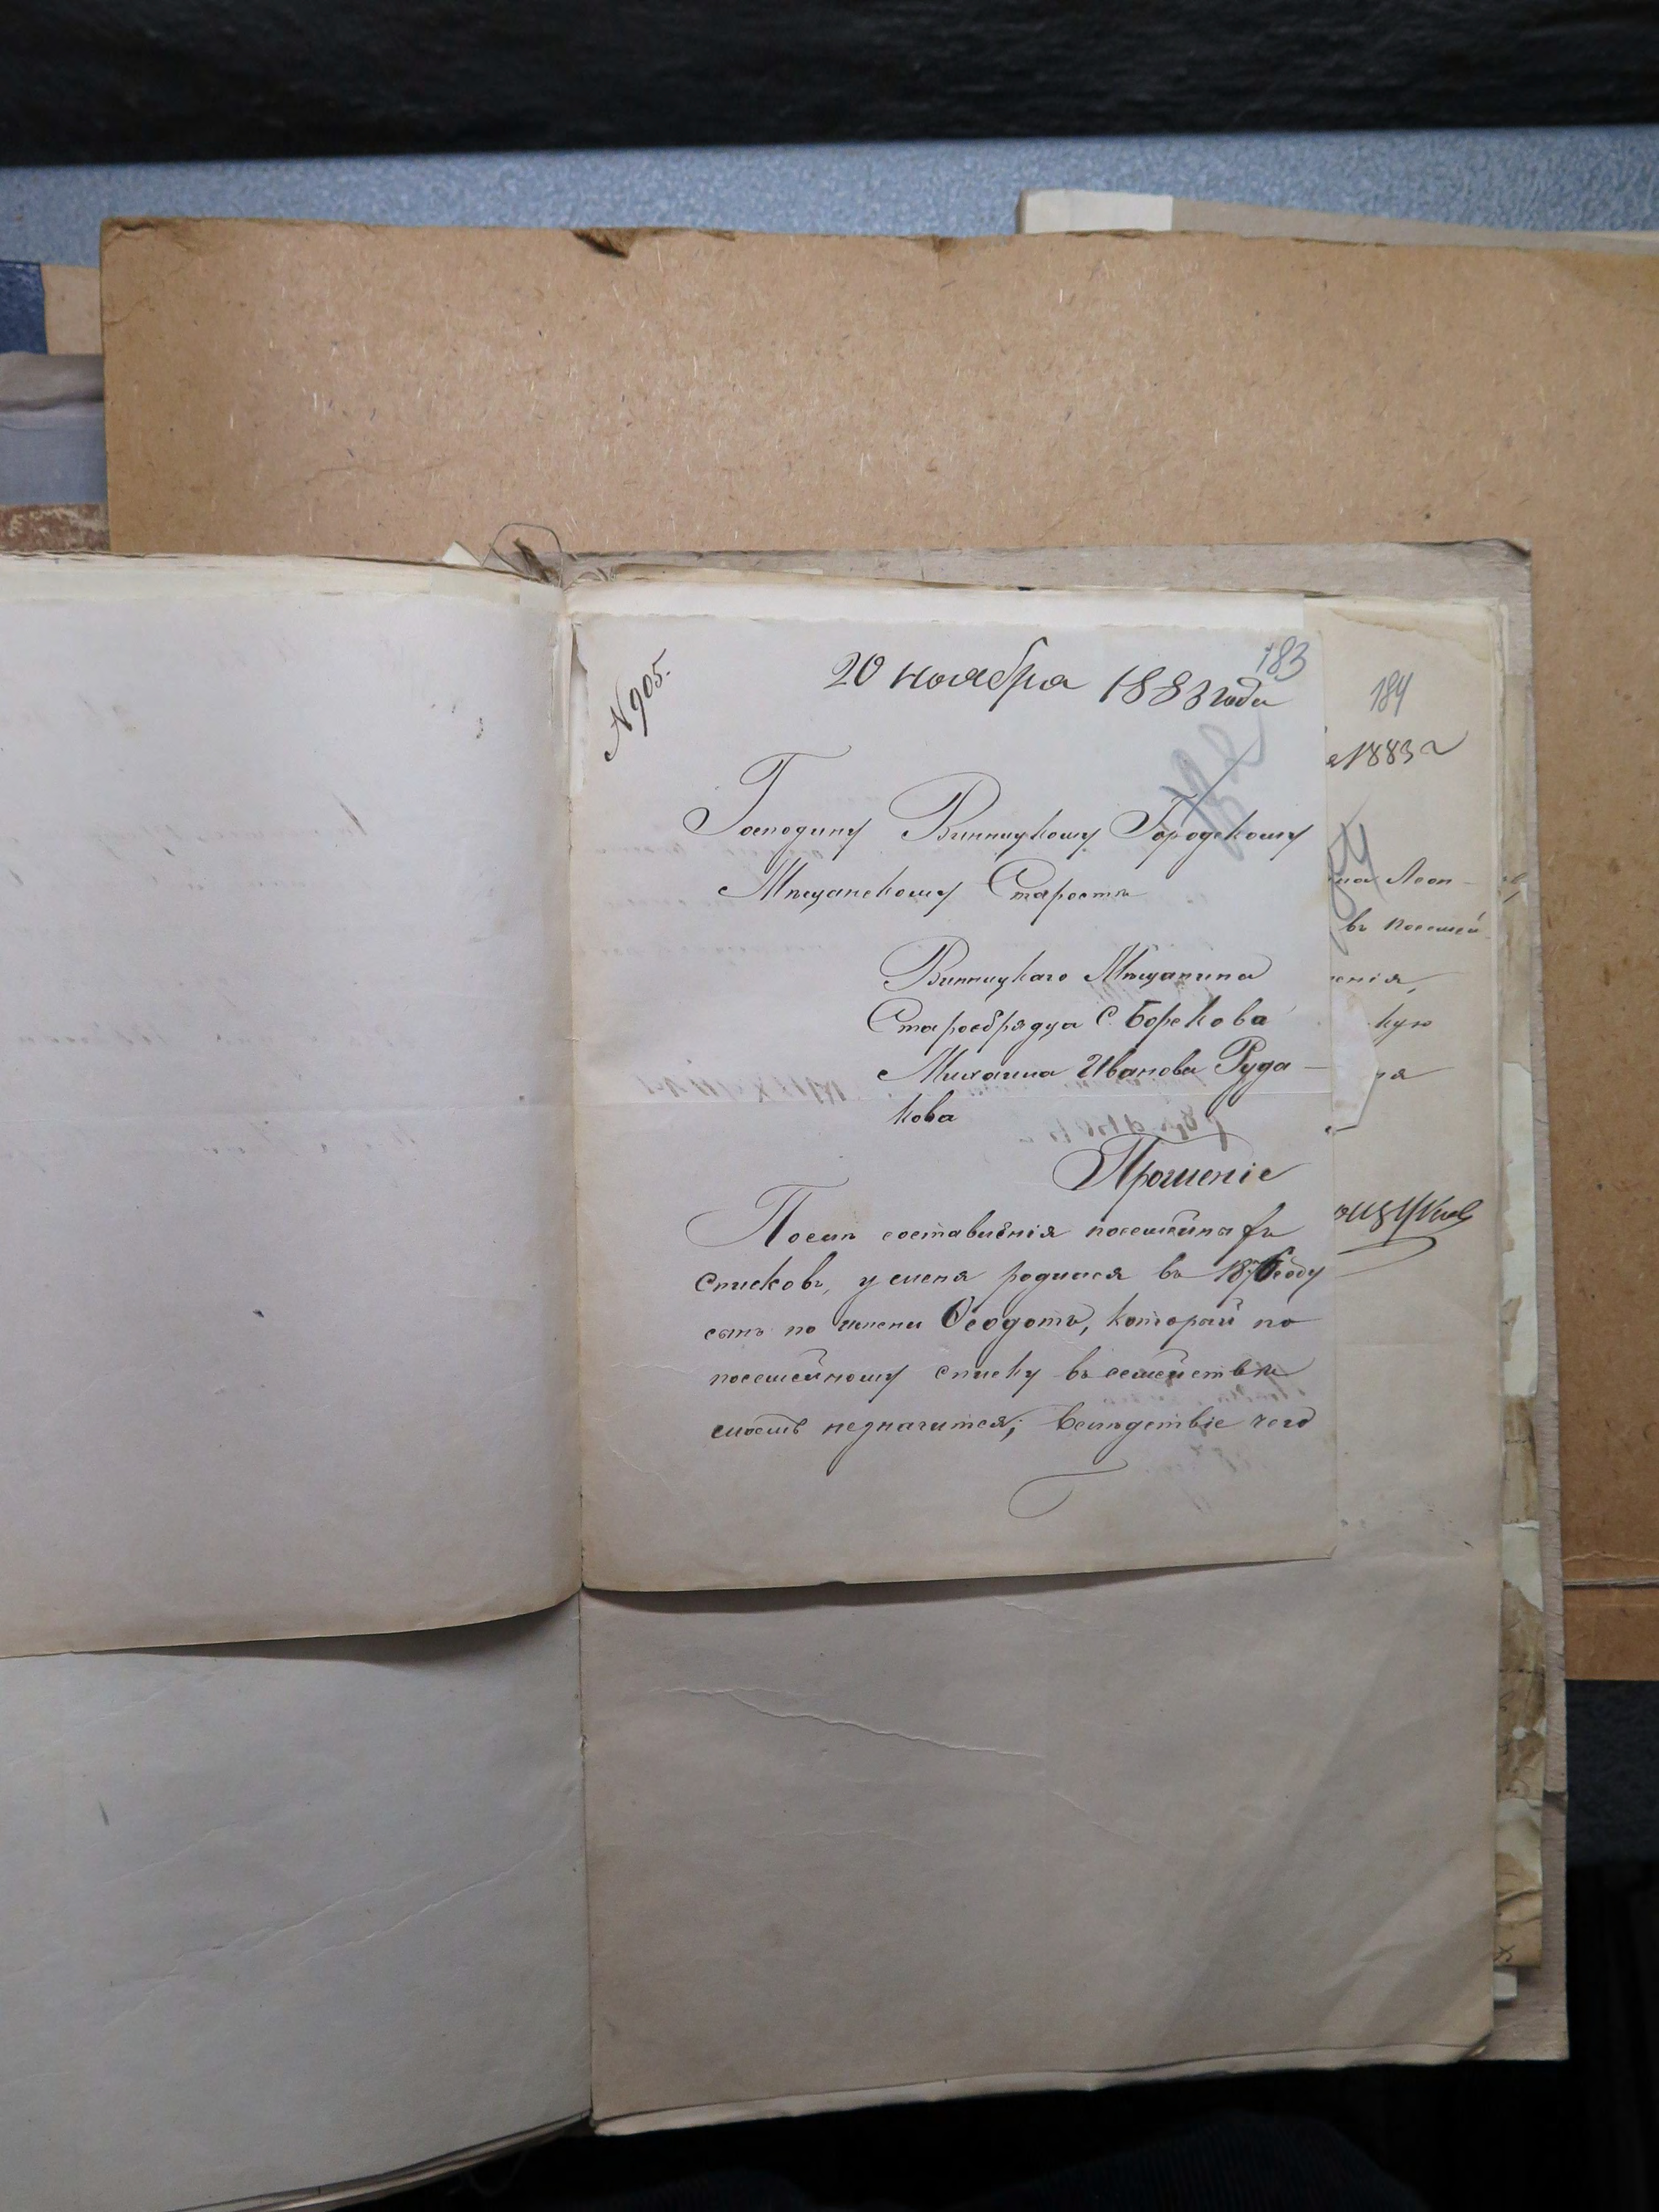 183
20 ноября 1883 года
N 905.
Господину Винницкому Городскому
Мѣщанскому Старостѣ
Винницкаго Мѣщанина
Старообрядца С. Борскова
Михаила Иванова Руда-
кова
Прошеніе
Послѣ составленія посемейныхъ
списковъ, у меня родился въ 1876 году
сынъ по имени Ѳеодотъ, который по
посемейному списку въ семействѣ
моемъ незначится; вслѣдствіе чего
184
1883 г
Леон-
въ посемей
енія,
кую
ря